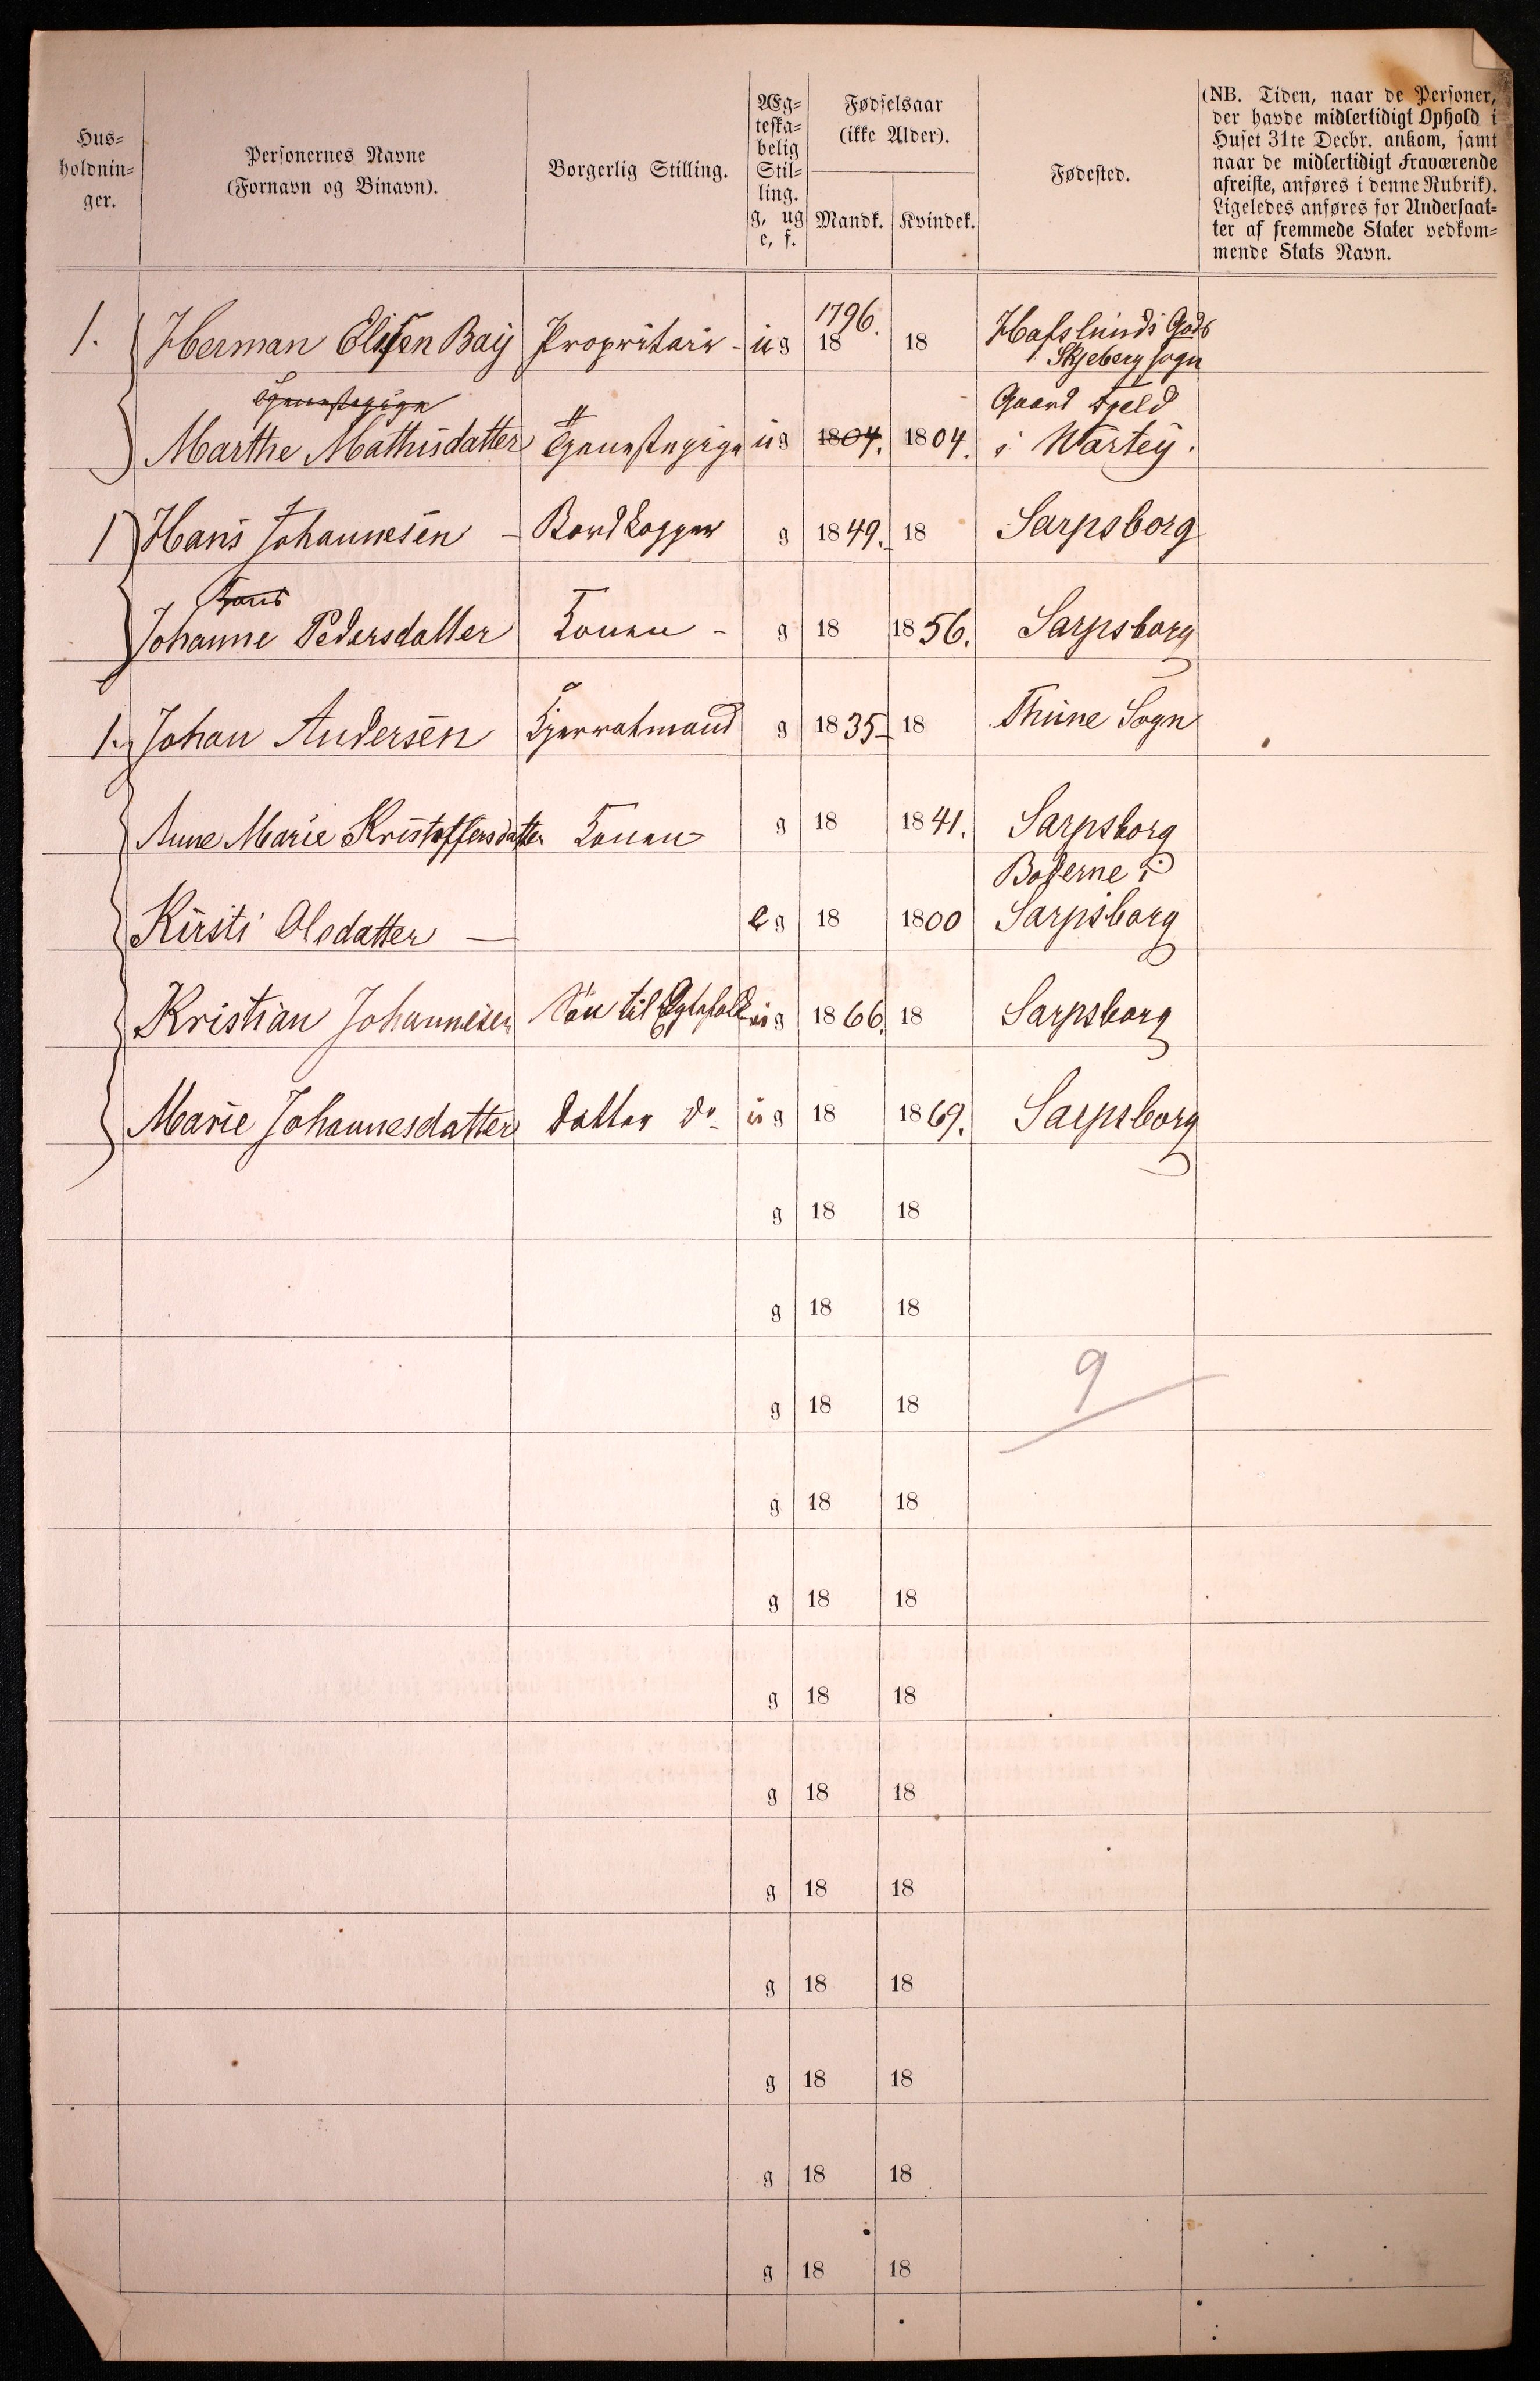 Hus-
holdnin-
ger.
Personernes Navne
(Fornavn og Binavn).
Borgerlig Stilling.
Æg-
teska-
belig
Stil-
ling.
g, ug
e, f.
Fødselsaar
(ikke Alder).
Mandk. Kvindek.
Fødested.
(NB. Tiden, naar de Personer,
der havde midlertidigt Ophold i
Huset 31te Decbr. ankom, samt
naar de midlertidigt Fraværende
afreiste, anføres i denne Rubrik).
Ligeledes anføres for Undersaat-
ter af fremmede Stater vedkom-
mende Stats Navn.
1796.
1. Herman Elifsen Baÿ Propritair - ug 18 18 Hafslunds Gods
Skjeberg sogn
Tjenestepige Gaard
Marthe Mathisdatter Tjenestepige ug 1804. 1804. i Warteÿ.
1 Hans Johannesen - Bordhugger g 1849. 18 Sarpsborg
Johanne Pedersdatter Konen - g 18 1856. Sarpsborg
1. Johan Andersen g 1835 18 Thune Sogn
Anne Marie Kristoffersdatter Konen g 18 1841. Sarpsborg
i
Kirsti Olsdatter — eg 18 1800 Sarpsborg
Kristian Johannesen Søn til Egtefolk ug 1866. 18 Sarpsborg
Marie Johannesdatter Datter do ug 18 1869. Sarpsborg
g 18 18
g 18 18
9
g 18 18
g 18 18
g 18 18
g 18 18
g 18 18
g 18 18
g 18 18
g 18 18
g 18 18
g 18 18